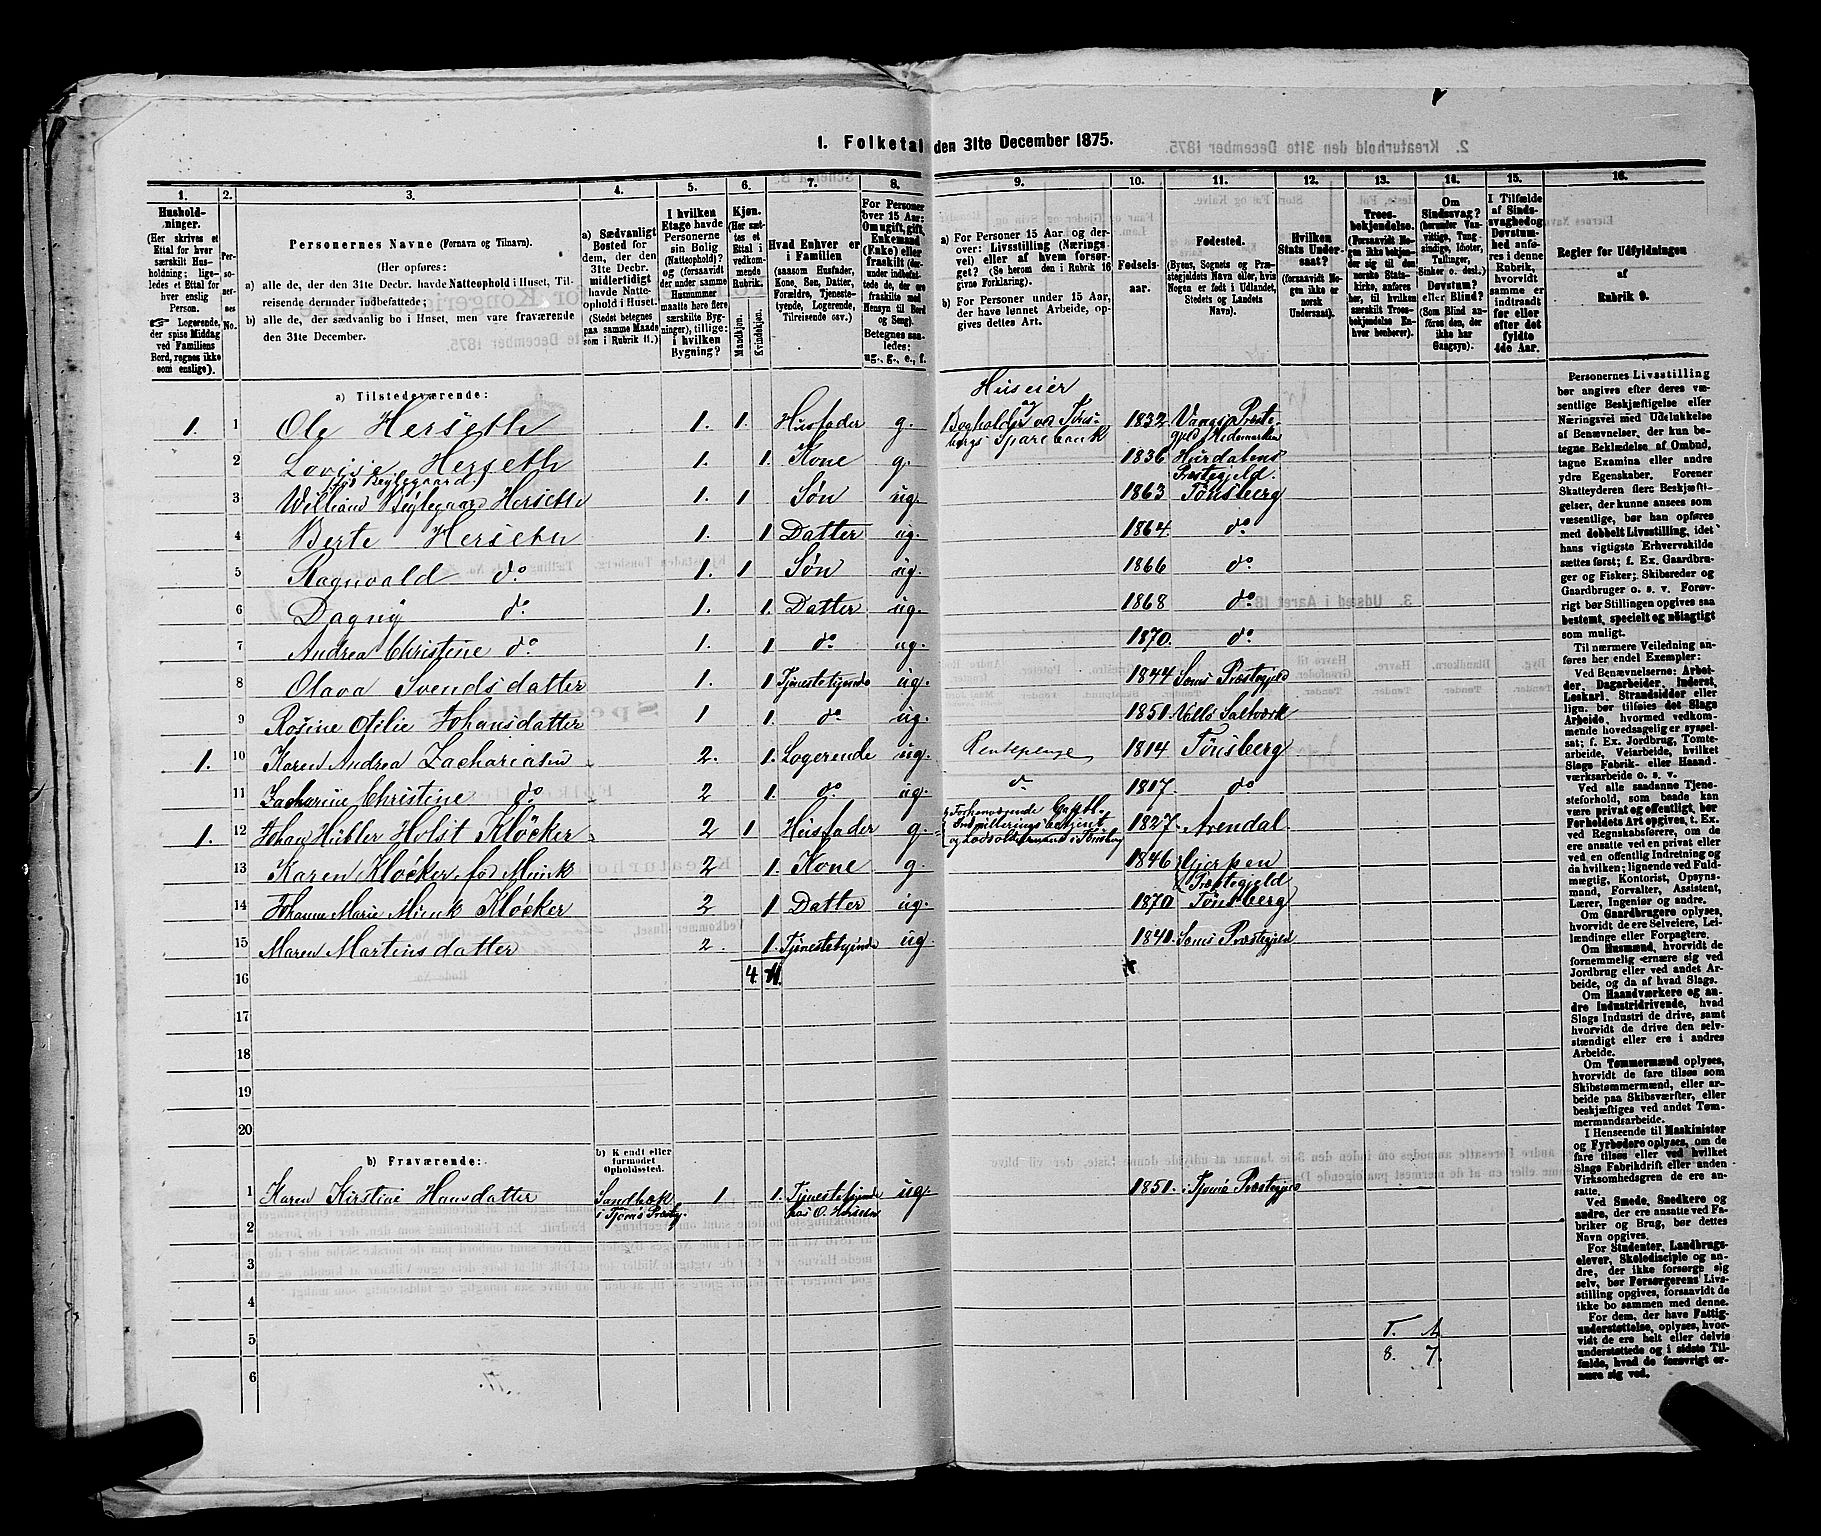 1. Folketal den 31te December 1875.
1. 2. 3. 4. 5. 6. 7. 8. 9. 10. 11. 12. 13. 14. 15. 16.
Hushold-
ninger.
(Her skrives et
Ettal for hver
særskilt Hus-
holdning; lige-
ledes et Ettal for
hver enslig
Person.
☞ Logerende,
der spise Middag
ved Familiens
Bord, regnes ikke
som enslige).
Per-
so-
ner-
nes
No.
Personernes Navne (Fornavn og Tilnavn).
(Her opføres:
a) alle de, der den 31te Decbr. havde Natteophold i Huset, Til-
reisende derunder indbefattede;
b) alle de, der sædvanlig bo i Huset, men vare fraværende
den 31te December.
a) Sædvanligt
Bosted for
dem, der den
31te Decbr.
midlertidigt
havde Natte-
ophold i Huset.
(Stedet betegnes
paa samme Maade
som i Rubrik 11.)
I hvilken
Etage havde
Personerne
sin Bolig
(Natteophold)?
og (forsaavidt
der under samme
Husnummer
maatte høre flere
særskilte Byg-
ninger), tillige:
i hvilken
Bygning?
Kjøn.
(Her sæt-
tes et
Ettal i
vedkom-
mende
Rubrik.
Mandkjøn.
Kvindekjøn.
Hvad Enhver er
i Familien
(saasom Husfader,
Kone, Søn, Datter,
Forældre, Tjeneste-
tyende, Logerende,
Tilreisende osv.)
For Personer
over 15 Aar:
Om ugift, gift,
Enkemand
(Enke) eller
fraskilt (der-
under indbefat-
tede de, der ere
fraskilte med
Hensyn til Bord
og Seng).
Betegnes saa-
ledes:
ug., g., e., f.
a) For Personer 15 Aar og der-
over: Livsstilling (Nærings-
vei) eller af hvem forsør-
get? (Se herom den i Rubrik 16
givne Forklaring).
b) For Personer under 15 Aar,
der have lønnet Arbeide, op-
gives dettes Art.
Fødsels-
aar.
Fødested.
(Byens, Sognets og Præ-
stegjeldets Navn eller, hvis
Nogen er født i Udlandet,
Stedets og Landets
Navn).
Hvilken
Stats Under-
saat?
(forsaavidt No-
gen ikke er
norsk
Undersaat).
Troes-
bekjendelse.
(Forsaavidt No-
gen ikke bekjen-
der sig til den
norske Stats-
kirke, anføres
her, til hvilken
særskilt Troes-
bekjendelse En-
hver henhører).
Om
Sindssvag?
(herunder Van-
vittige, Tung-
sindige, Idioter,
Tullinger,
Sinker o. desl.)
Døvstum?
eller Blind?
(Som Blind an-
føres den, der
ikke har
Gangsyn).
I Tilfælde
af Sinds-
svaghed og
Døvstum-
hed anfø-
res i denne
Rubrik,
hvorvidt
samme er
indtraadt
før eller
efter det
fyldte
4de Aar.
Regler for Udfyldningen
af
Rubrik 9.
a) Tilstedeværende:
Huseier
og
1. 1 Ole Herseth 1. 1. Husfader g. Bogholder ved Tøns-
bergs Sparebank 1832 Vangs Præste-
gjeld Hedemarken
2 Lovise Herseth
født Beylegaard 1. 1. Kone g. 1836 Hurdalens
Præstegjeld.
3 William Beylegaard Herseth 1. 1 Søn ug. 1863 Tønsberg
4 Berte Herseth 1. 1 Datter ug. 1864. do
5 Ragnvald do. 1. 1 Søn ug. 1866 do
6 Dagny do 1. 1. Datter ug. 1868 do
7 Andrea Christine do 1. 1 do ug. 1870. do
8 Olava Svendsdatter 1. 1 Tjenestetyende ug. 1844 Sems Præstegjeld
9 Rosine Otilie Johansdatter 1 1. do ug. 1851. Vallø Saltværk
1. 10 Karen Andrea Zachariasen 2. 1. Logerende ug. Rentepenge 1814 Tønsberg
11 Zacharine Christine do 2 1. do ug. do 1817. do
1. 12 Johan Hübler Holst Kløcker 2 1 Husfader g. Forhenværende Captl.
Indrulleringsbetjent
og Lodsoldermand i Tønsberg 1827. Arendal.
13 Karen Kløcker fød Münk 2 1. Kone g. 1846 Gjerpen
Præstegjeld
14 Johanne Marie Münk Kløcker 2 1 Datter ug. 1870 Tønsberg
15 Maren Martinsdatter 2. 1. Tjenestetyende ug 1840. Sems Præstegjeld
16 4 11.
17
18
19
20
b) Fraværende:
b) Kjendt eller
formodet
Opholdssted.
1 Karen Kirstine Hansdatter Sandbæk
i Tjømø Præstgj. 1 1. Tjenestetyende
hos O. Herseth ug. 1851. Tjømø Præstegjeld
2
3
4
5
6
T. A.
8. 7.
Personernes Livsstilling
bør angives efter deres væ-
sentlige Beskjæftigelse eller
Næringsvei med Udelukkelse
af Benævnelser, der kun be-
tegne Beklædelse af Ombud,
tagne Examina eller andre
ydre Egenskaber. Forener
Skatteyderen flere Beskjæfti-
gelser, der kunne ansees som
væsentlige, bør han opføres
med dobbelt Livsstilling, idet
hans vigtigste Erhvervskilde
sættes først; f. Ex. Gaardbru-
ger og Fisker; Skibsreder og
Gaardbruger o. s. v. Forøv-
rigt bør Stillingen opgives saa
bestemt, specielt og nøiagtigt
som muligt.
Til nærmere Veiledning an-
føres her endel Exempler:
Ved Benævnelserne: Arbei-
der, Dagarbeider, Inderst,
Løskarl, Strandsidder eller
lign. bør tilføies det Slags
Arbeide, hvormed vedkom-
mende hovedsagelig er syssel-
sat; f. Ex. Jordbrug, Tomte-
arbeide, Veiarbeide, hvilket
Slags Fabrik- eller Haand-
værksarbeide o. s. v.
Ved alle saadanne Tjene-
steforhold, som baade kan
være privat og offentligt, bør
Forholdets Art opgives, t. Ex.
ved Regnskabsførere, om de
ere ansatte ved en privat eller
ved en offentlig Indretning og
da hvilken; lignende ved Fuld-
mægtig, Kontorist, Opsyns-
mand, Forvalter, Assistent,
Lærer, Ingeniør og andre.
Om Gaardbrugere oplyses,
hvorvidt de ere Selveiere, Lei-
lændinge eller Forpagtere.
Om Husmænd, hvorvidt de
fornemmelig ernære sig ved
Jordbrug eller ved andet Ar-
beide, og da af hvad Slags.
Om Haandværkere og an-
dre Industridrivende, hvad
Slags Industri de drive, samt
hvorvidt de drive den selv-
stændigt eller ere i andres
Arbeide.
Om Tømmermænd oplyses,
hvorvidt de fare tilsøs som
Skibstømmermænd, eller ar-
beide paa Skibsværfter, eller
beskjæftiges ved andet Tøm-
mermandsarbeide.
I Henseende til Maskinister
og Fyrbødere oplyses, om de
fare tilsøs eller ved hvilket
Slags Fabrikdrift eller anden
Virksomhedsgren de ere an-
satte.
Ved Smede, Snedkere og
andre, der ere ansatte ved Fa-
briker og Brug, bør dettes
Navn opgives.
For Studenter, Landbrugs-
elever, Skoledisciple og an-
dre, der ikke forsørge sig
selv, bør Forsørgerens Livs-
stilling opgives, forsaavidt de
ikke bo sammen med denne.
For dem, der have Fattig-
understøttelse, oplyses, hvor-
vidt de ere helt eller delvis
understøttede og i sidste Til-
fælde, hvad de forøvrigt er-
nære sig ved.